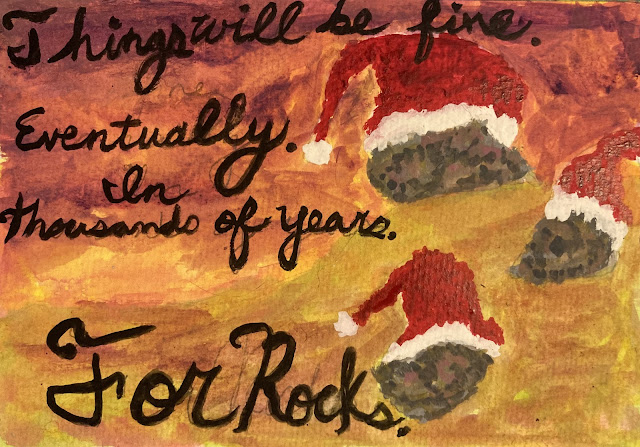 Things will be fine.
Eventually.
In
thousands of years.
For Rocks.